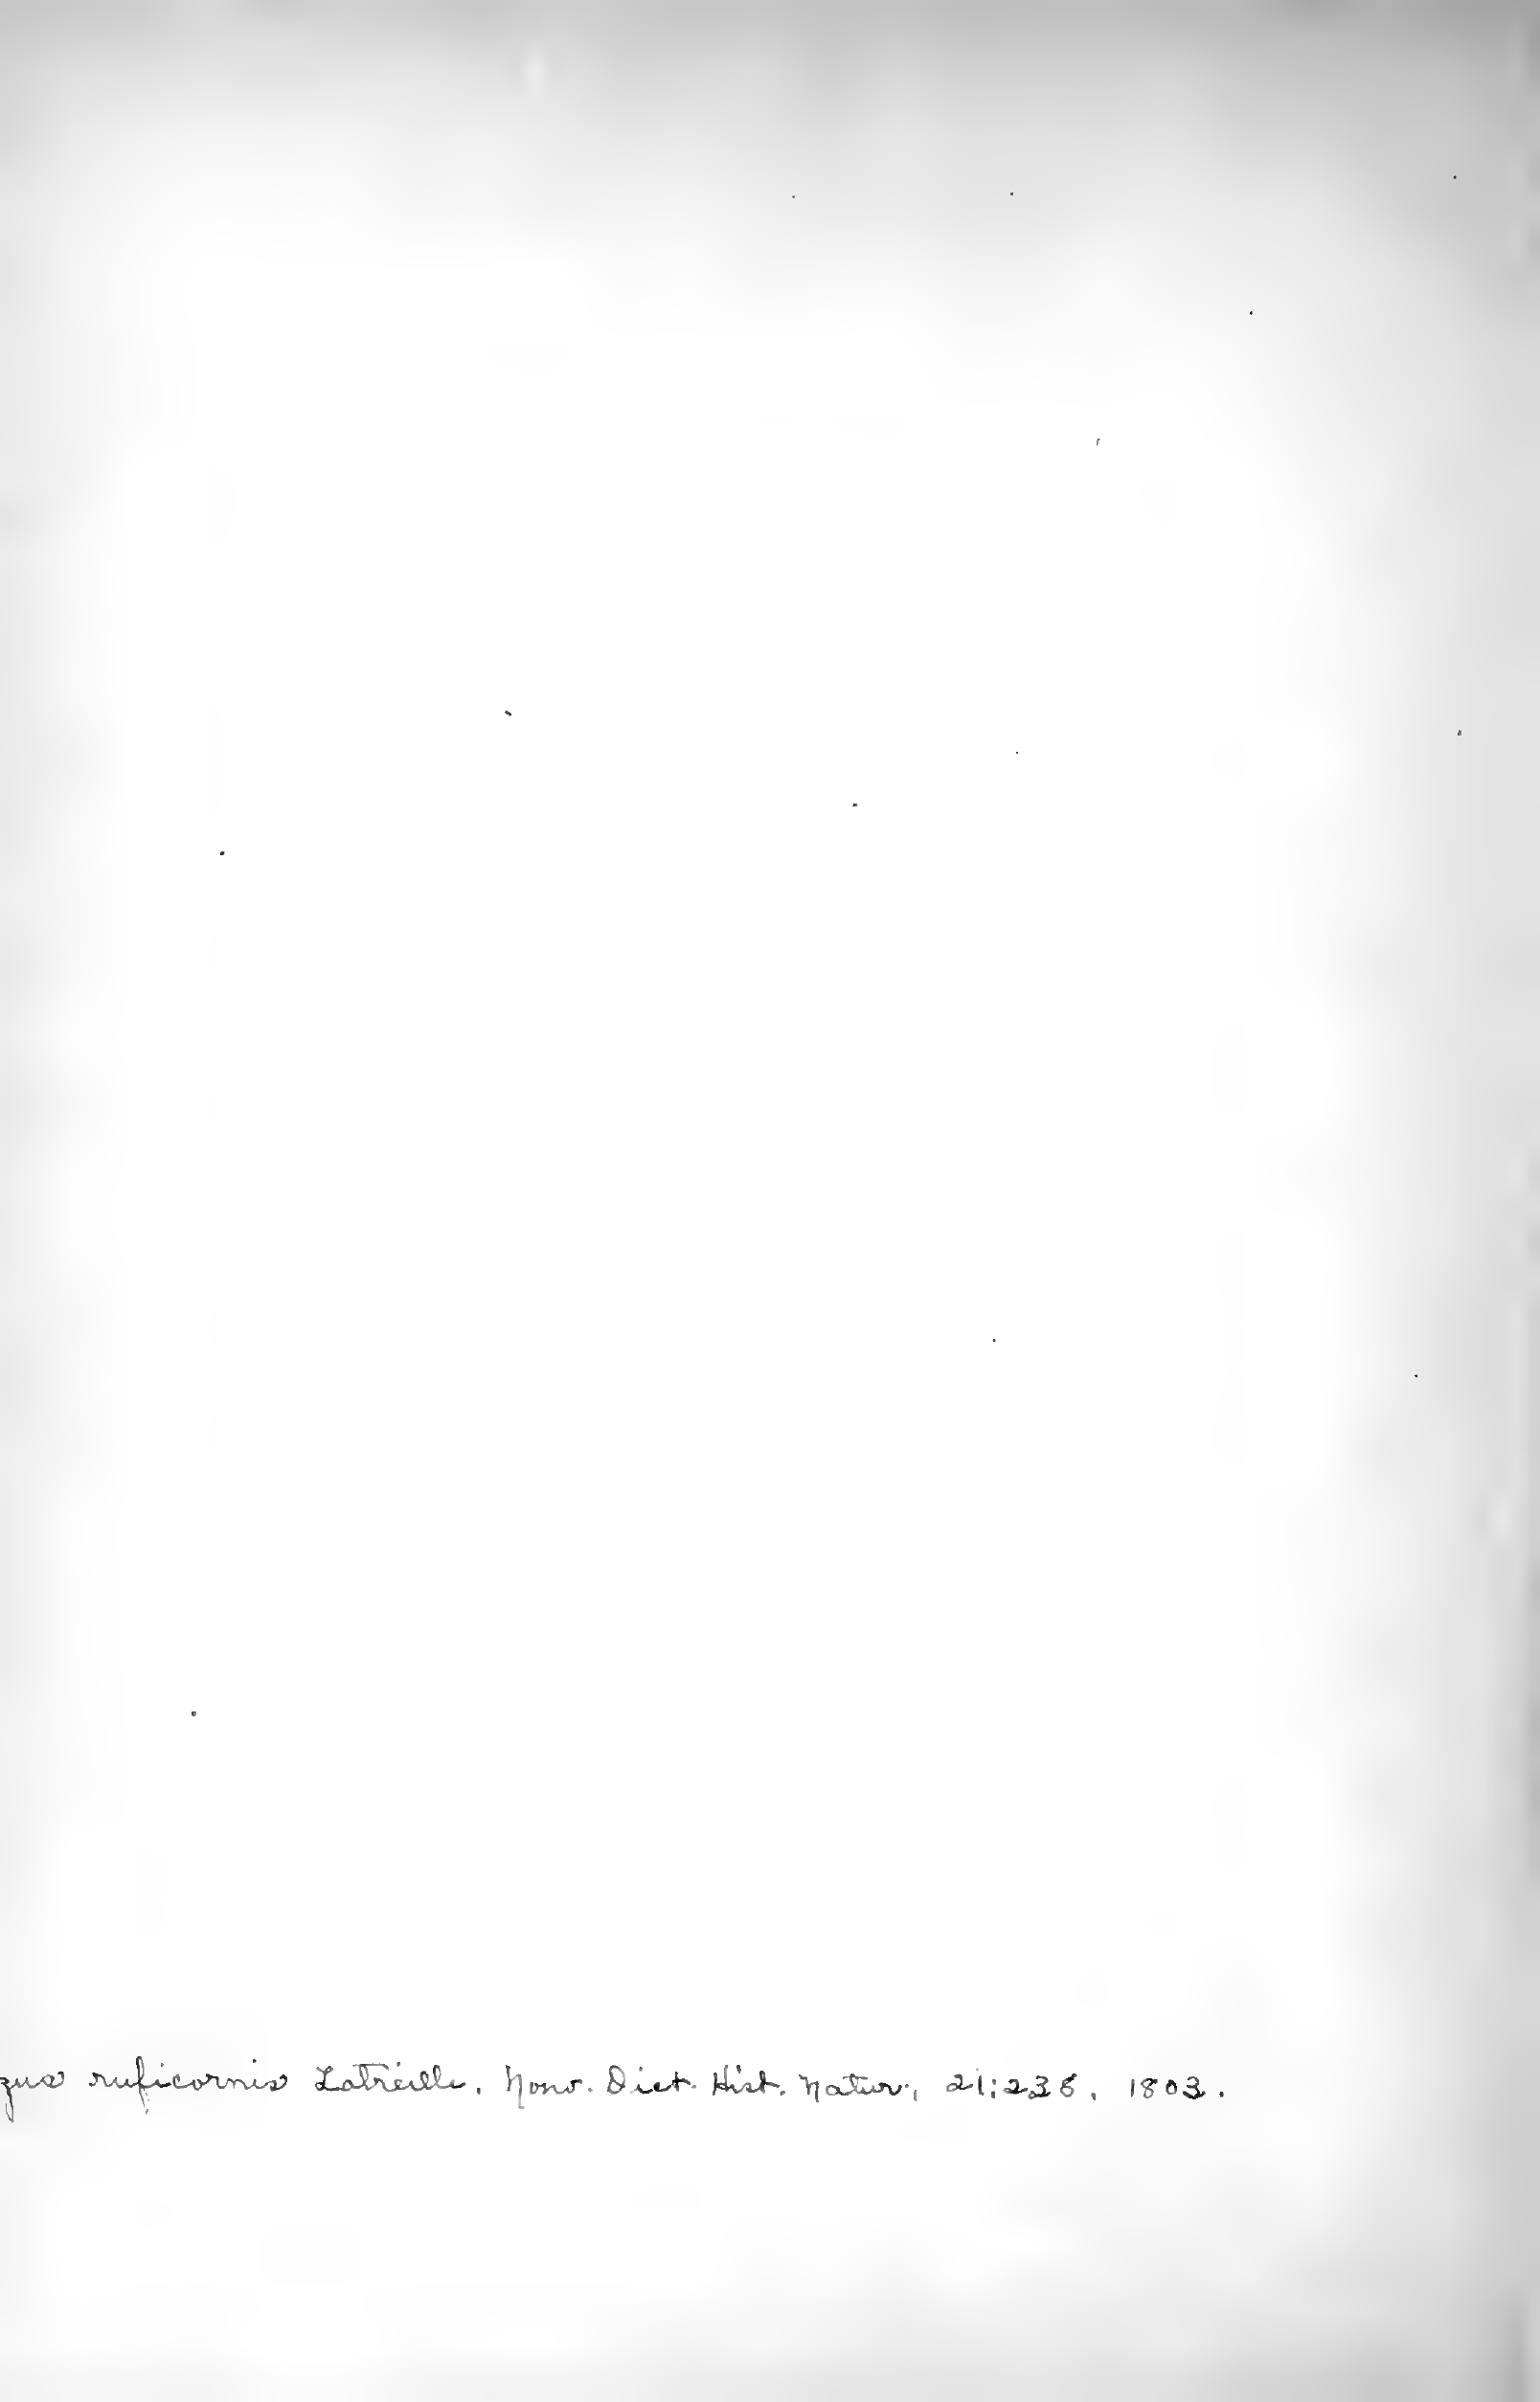 zus ruficornis Latreille. Nouv. Dict. Hist. Natur., 21:238, 1803.